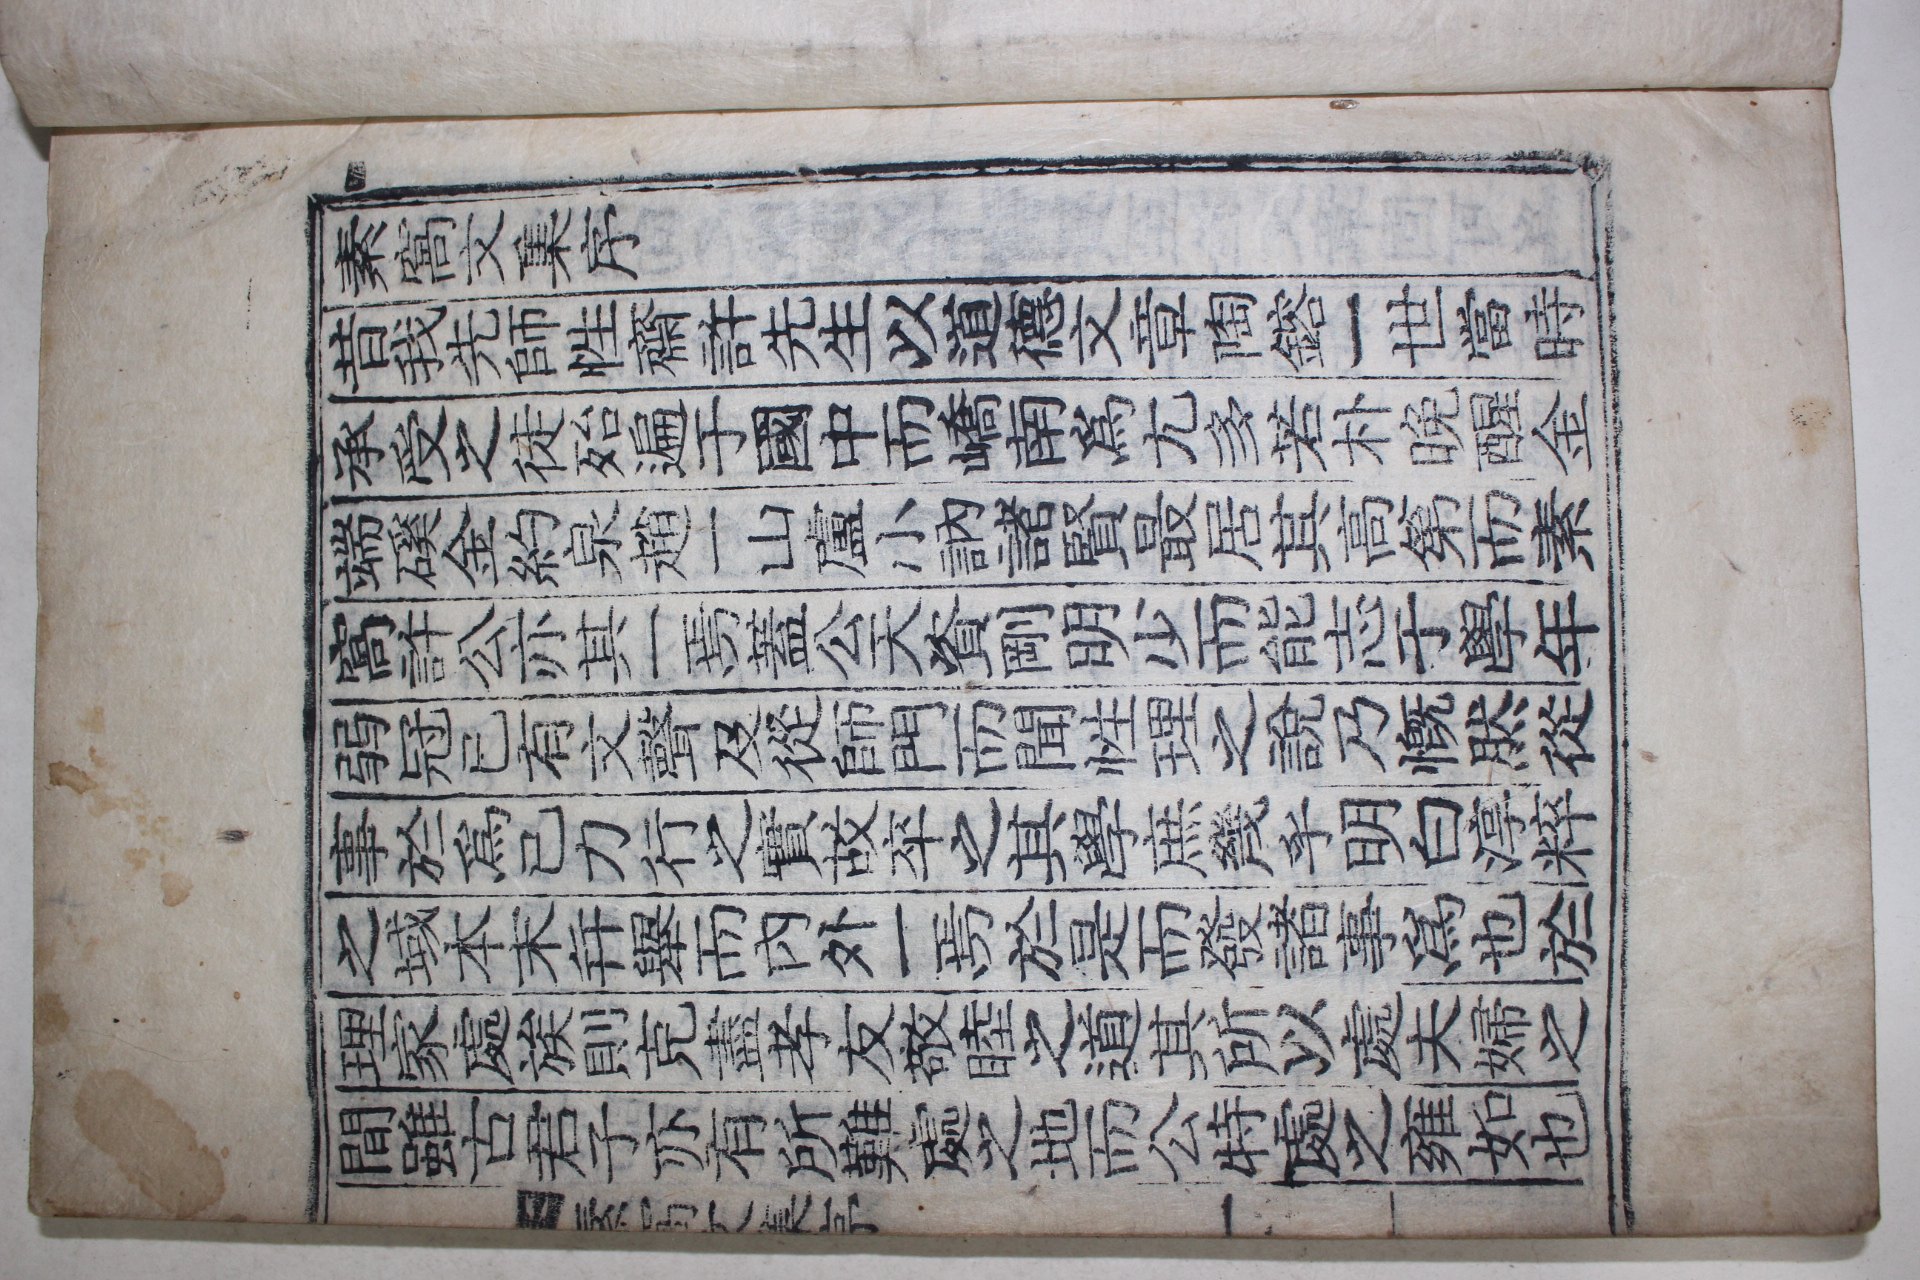 素窩文集序
昔我先師性齋許先生以道德文章陶鎔一世當時
承受之徒殆遍于國中而嶠南爲尤多若朴晩醒金
端磎金約泉趙一山盧小訥諸賢最居其高第而素
窩許公亦其一焉蓋公天資剛明少而能志于學年
弱冠已有文聲及從師門而聞性理之說乃慨然從
事於爲己力行之實故卒之其學庶幾乎明白淳粹
之域本末幷擧而內外一焉於是而發諸事爲也於
理家處族則克盡孝友敬睦之道其所以處夫婦之
間雖古君子亦有所難處之地而公特處之雍如也
素窩文集序
一